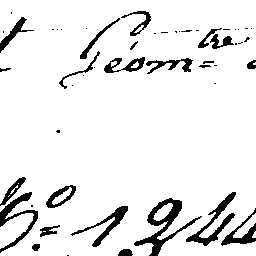 Géom.tre
No. 1244